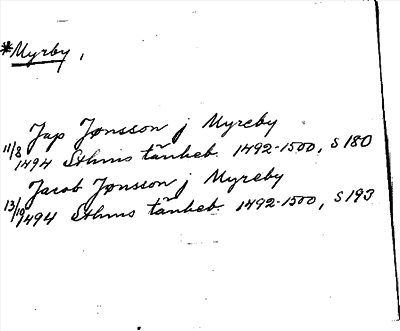 *Myrby,
Jap Jonsson j Myreby
11/8 1494 Sthms tänkeb. 1492-1500, s 180
Jacob Jonsson j Myreby
13/10 1494 Sthms tänkeb. 1492-1500, s 193